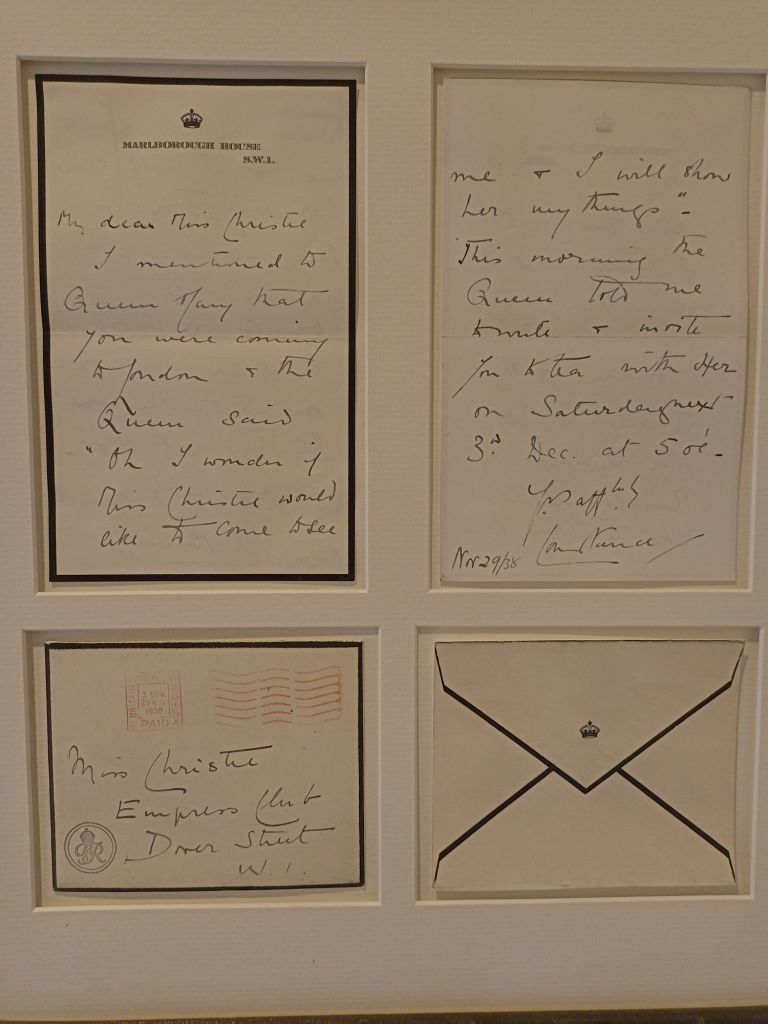 MARLBOROUGH HOUSE
S.W.1.
My dear Miss Christie
I mentioned to
Queen Mary that
you were coming
to London & the
Queen said
"Oh I wonder if
Miss Christie would
like to come to see
me & I will show
her my things" -
This morning the
Queen told me
to write & invite
you to tea with Her
on Saturday next
3rd Dec. at 5 o'c -
Nov 29/38
PAID
1938
Miss Christie
Empress Club
Dover Street
W.1.